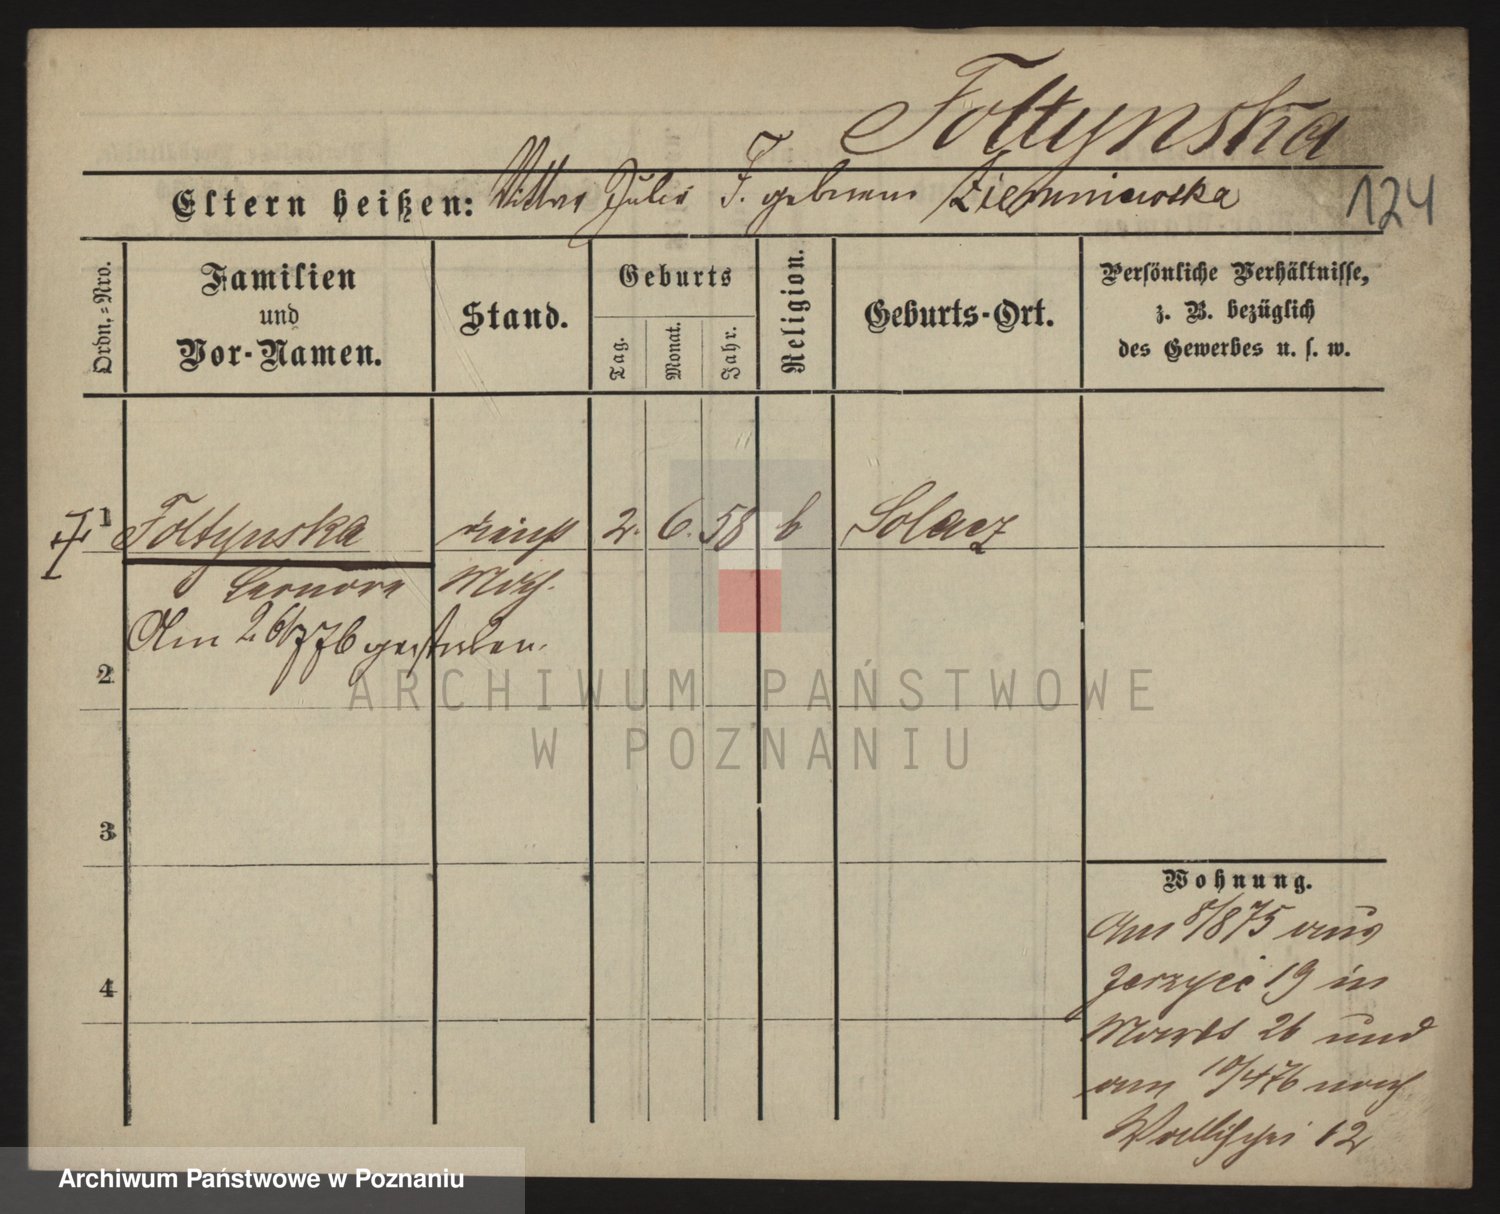 Foltynska
Eltern heißen: Mutter Julie F. geborene Ziemniewska
124
Ordn.-Nro.
Familien
und
Vor-Namen.
Stand.
Geburts
Tag.
Monat.
Jahr.
Religion.
Geburts-Ort.
Persönliche Verhältnisse,
z. B. bezüglich
des Gewerbes u. s. w.
1 Foltynska 2. 6. 58 k Solacz
Leonore
Am 26/7 76 gestorben.
2
3
4
Wohnung.
Am 8/8 75 aus
Jerzyce 19 in
Markt 26 und
am 10/4 76 nach
Wallischei 12
ARCHIWUM PAŃSTWOWE
W POZNANIU
Archiwum Państwowe w Poznaniu